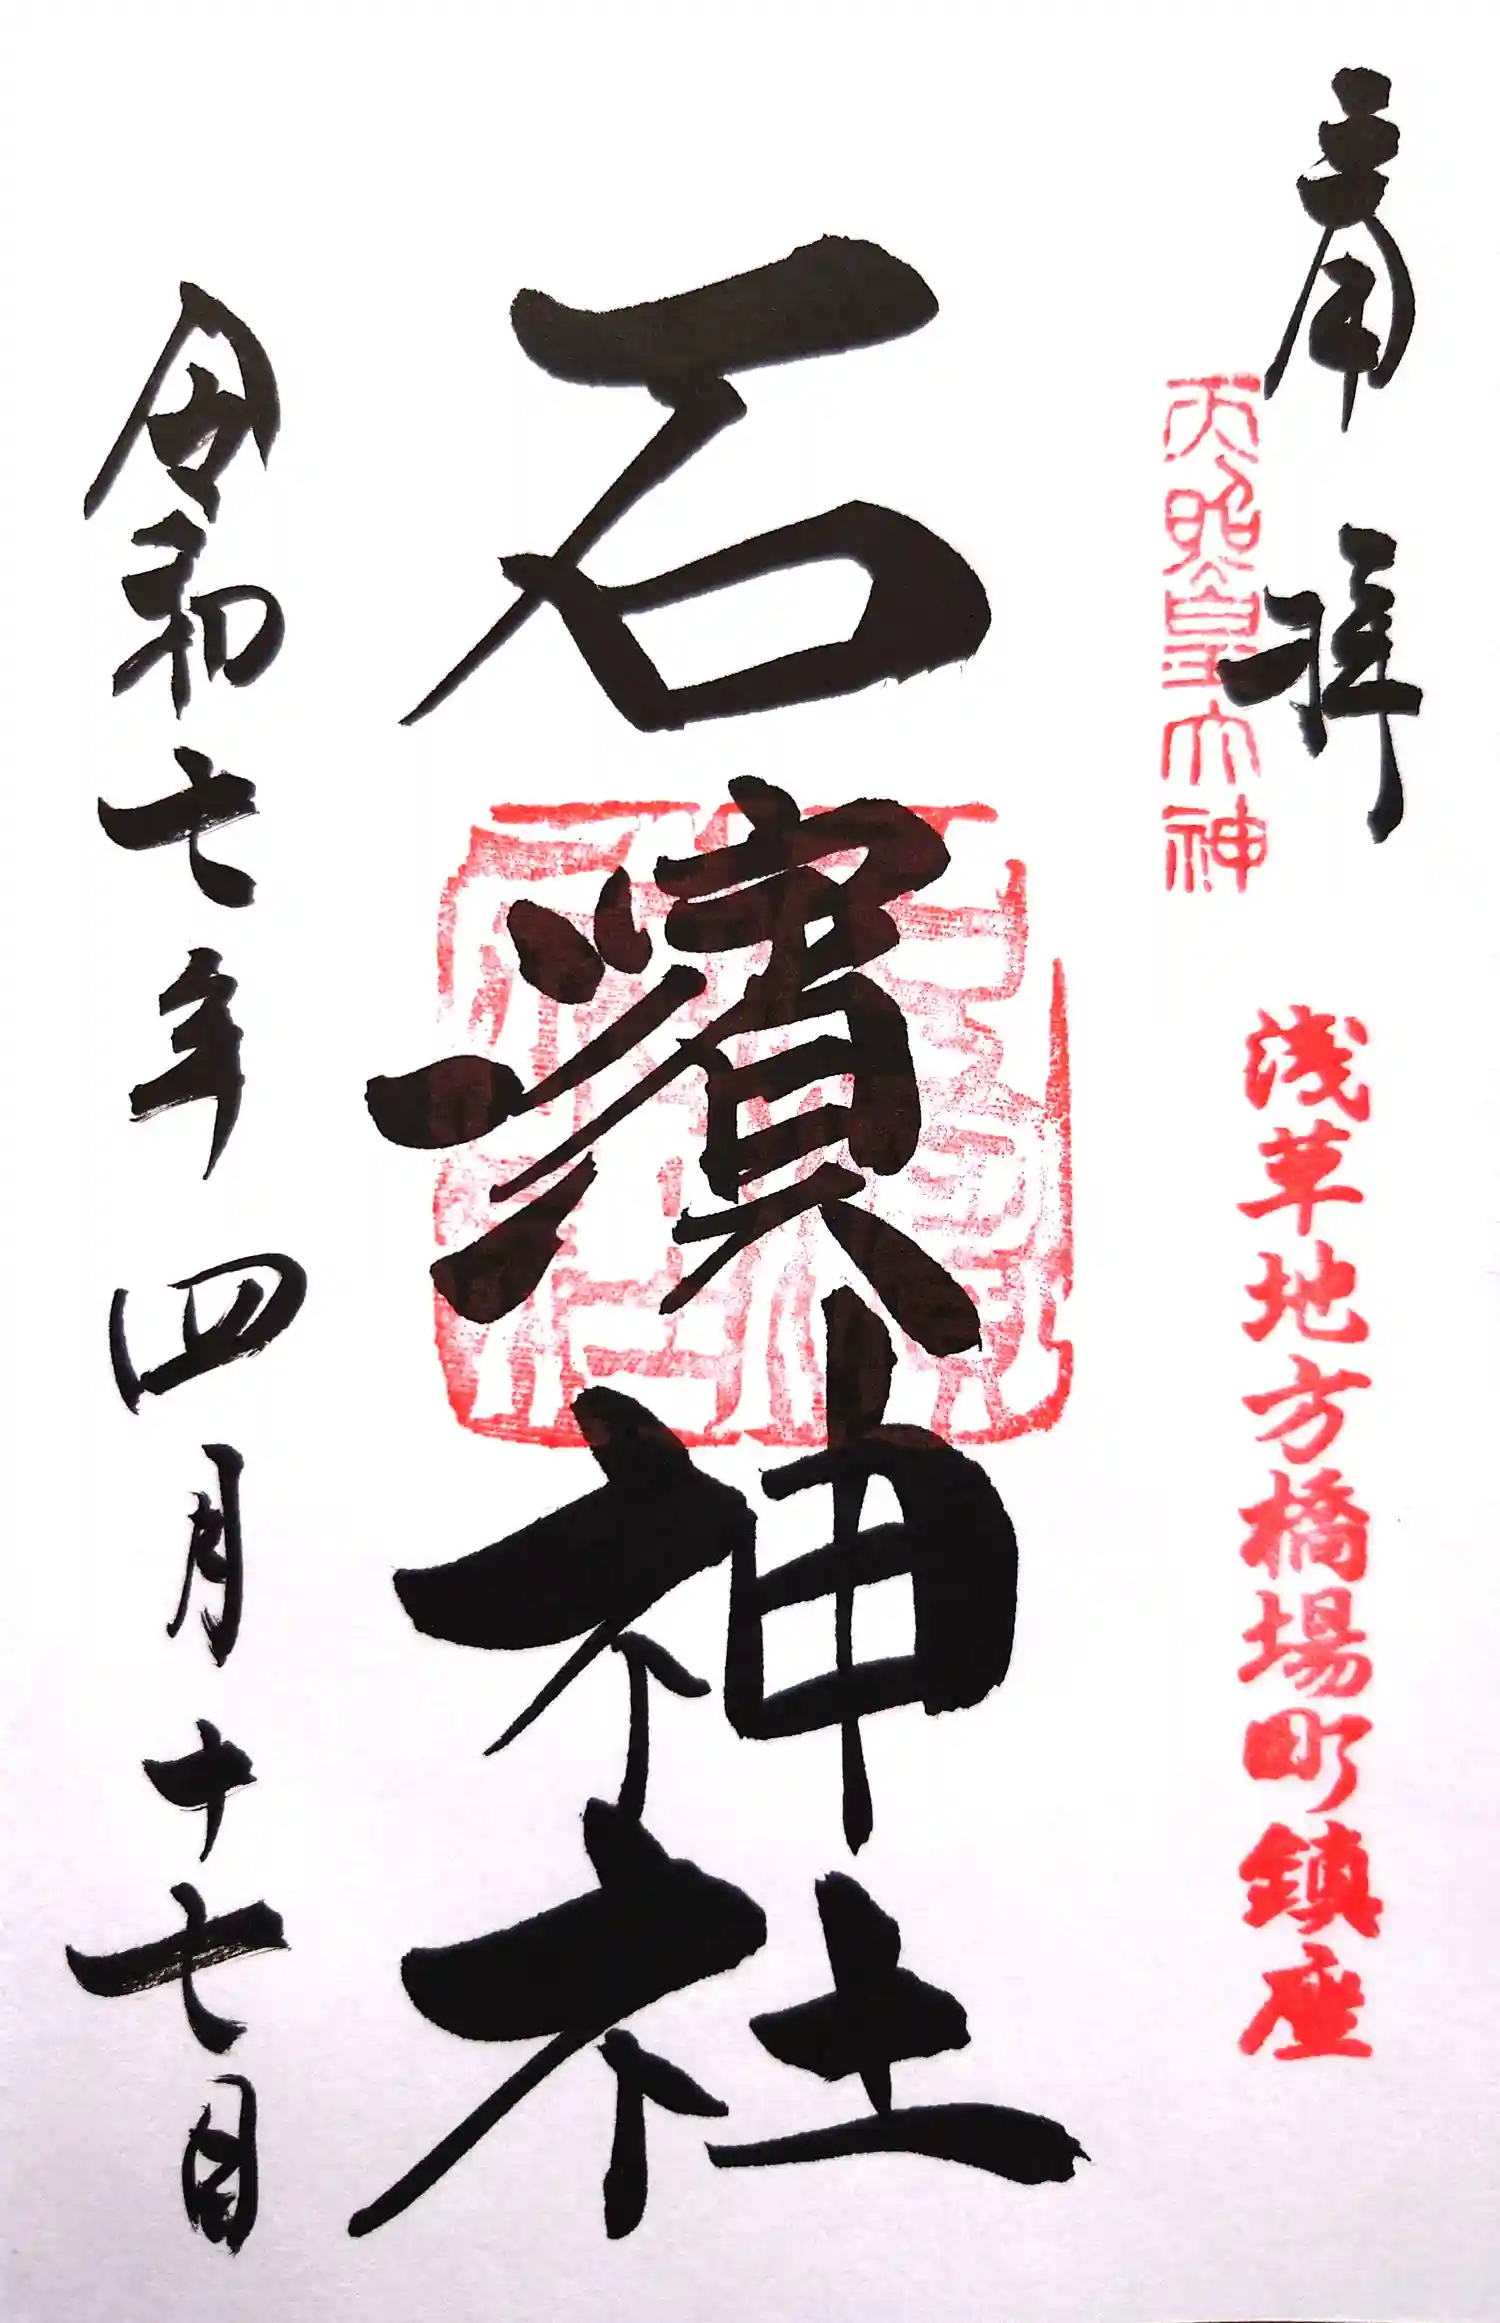 奉拝
天照皇大神
浅草地方橋場町鎮座
石濱神社
令和七年四月十七日